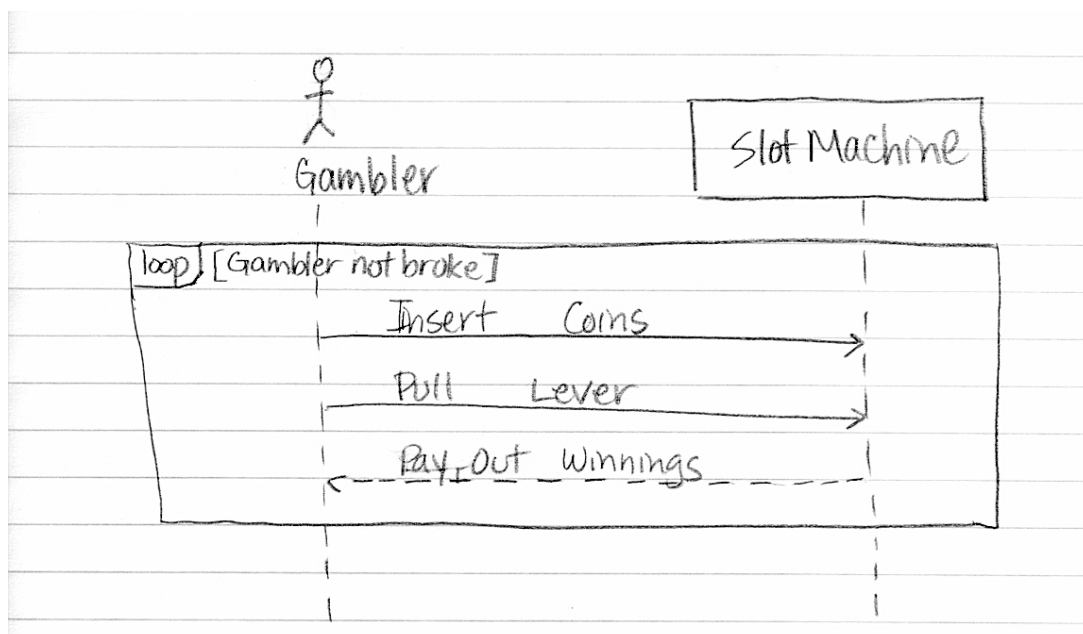 Gambler
Slot Machine
loop [Gambler not broke]
Insert Coins
Pull Lever
Pay Out Winnings